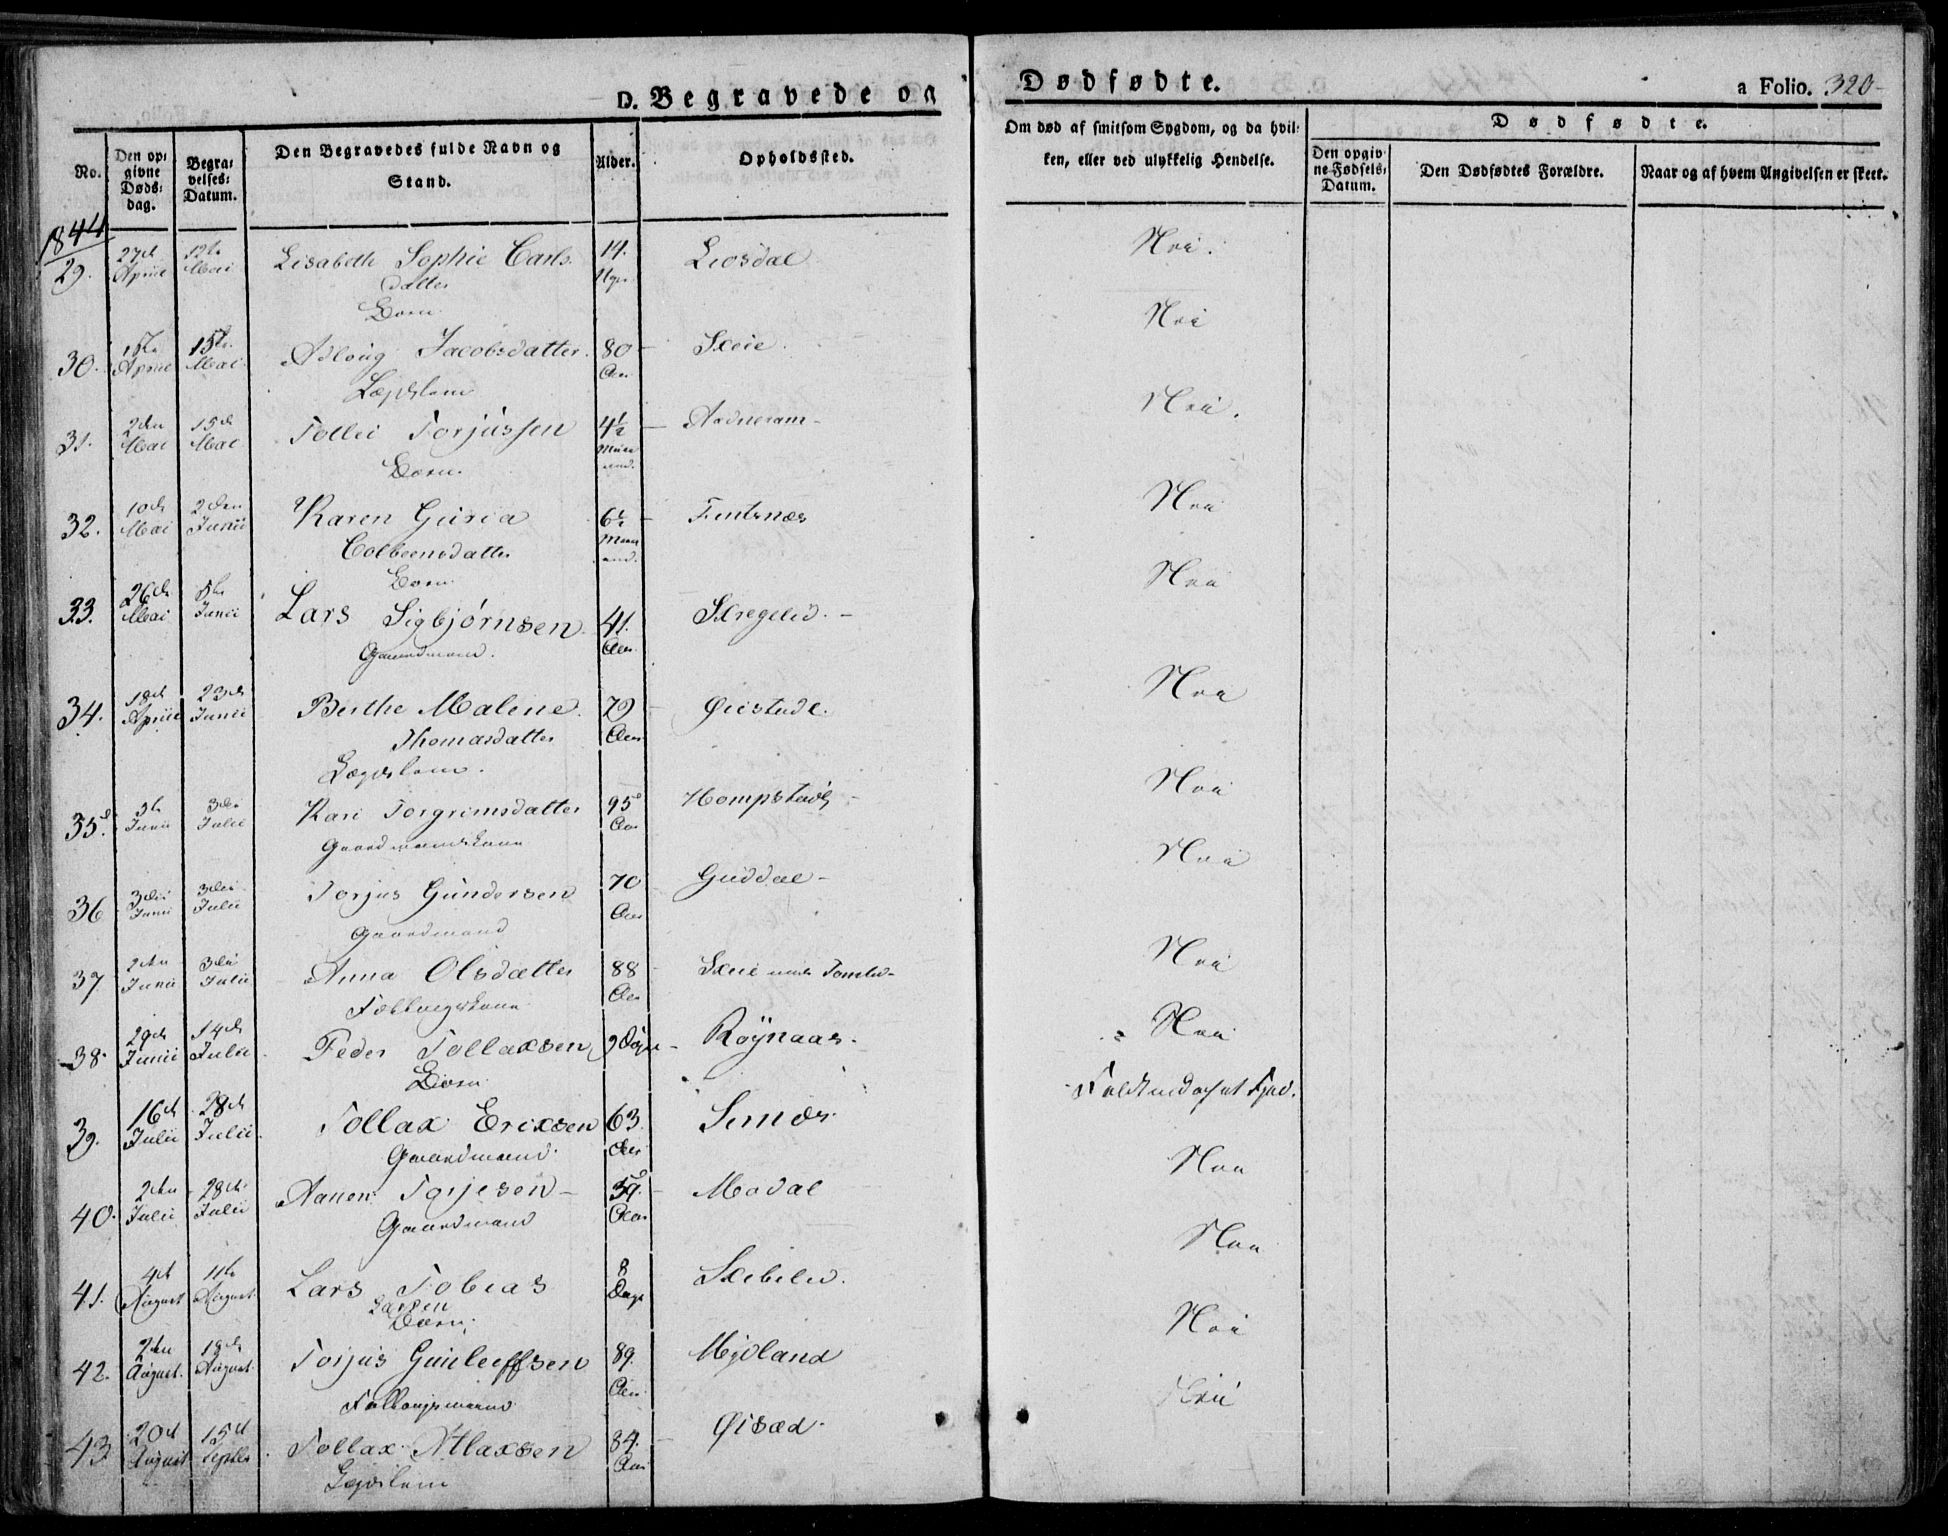 D. Begravede og
Dødfødte.
a Folio. 320
No.
Den opgivne Dødsdag.
Begravelses-Datum.
Den Begravedes fulde Navn og Stand.
Alder.
Opholdssted.
Om død af smitsom Sygdom, og da hvilken, eller ved ulykkelig Hendelse.
Dødfødte.
Den opgivne Fødsels-Datum.
Den Dødfødtes Forældre.
Naar og af hvem Angivelsen er skeet.
1844
29. 27de April 12te Mai Lisabeth Sophie Carls 14. Liosdal Nei.
datter Uger
Barn
30. April 15te Mai Jacobsdatter 80 Skeie. Nei
Lægdslem Aar
31. 2den Mai 15de Mai Tollei Torjussen 4½ Nei.
Barn. Maaned.
32. 10de Mai 2den Junii Karen Guria 6½ Nei
datter Maaned.
Barn
33. 26de Mai Junii Lars Sigbjørnsen 41. Skregelid. Nei
Gaardmand. Aar.
34. 18de April 23de Junii Berthe Malene 79 Øustade. Nei
Thomasdatter Aar
Lægdslem.
35. Junii 3die Julii Kari Torgrimsdatter 95 Hompstad Nei
Gaardmandskone Aar
36 3die Junii 3die Julii Torjus Gundersen 70 Guddal Nei
Gaardmand Aar
37 2den Junii 3die Julii Anna Olsdatter 88 Skeie under Nei
Folkougskone Aar
38. 29de Junii 14de Julii Peder Tollaksen 9 Døgn Røynaas. Nei
Barn
39. 16de Julii 28de Julii Tollak Eriksen 63. Sinnes.
Gaardmand Aar
40. 2den Julii 28de Julii Aanen Torjesen 59 Modal Nei
Gaardmand Aar
41. 4de August 11te August Lars Tobias 8 Skibelid. Nei
Larsen Dage
Barn.
42. 2den August. 18de August Torjus Gunleiffsen 89. Mydland Nei
Folkougsmand Aar
43 20de August 15de Septbr Tollak Atlaksen 84. Øisæd. Nei
Lægdslem Aar